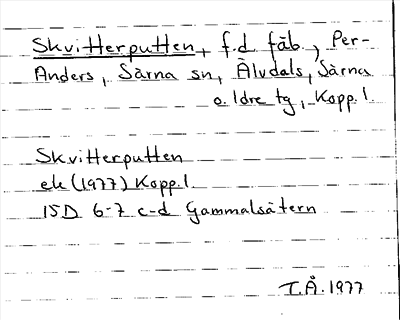 Skvitterputten, f.d fäb., Per-
Anders, Särna sn, Älvdals, Särna
o. Idre tg, Kopp. l.
Skvitterputten
ek (1977) Kopp. l.
15D 6-7 c-d Gammalsätern
T.Å. 1977